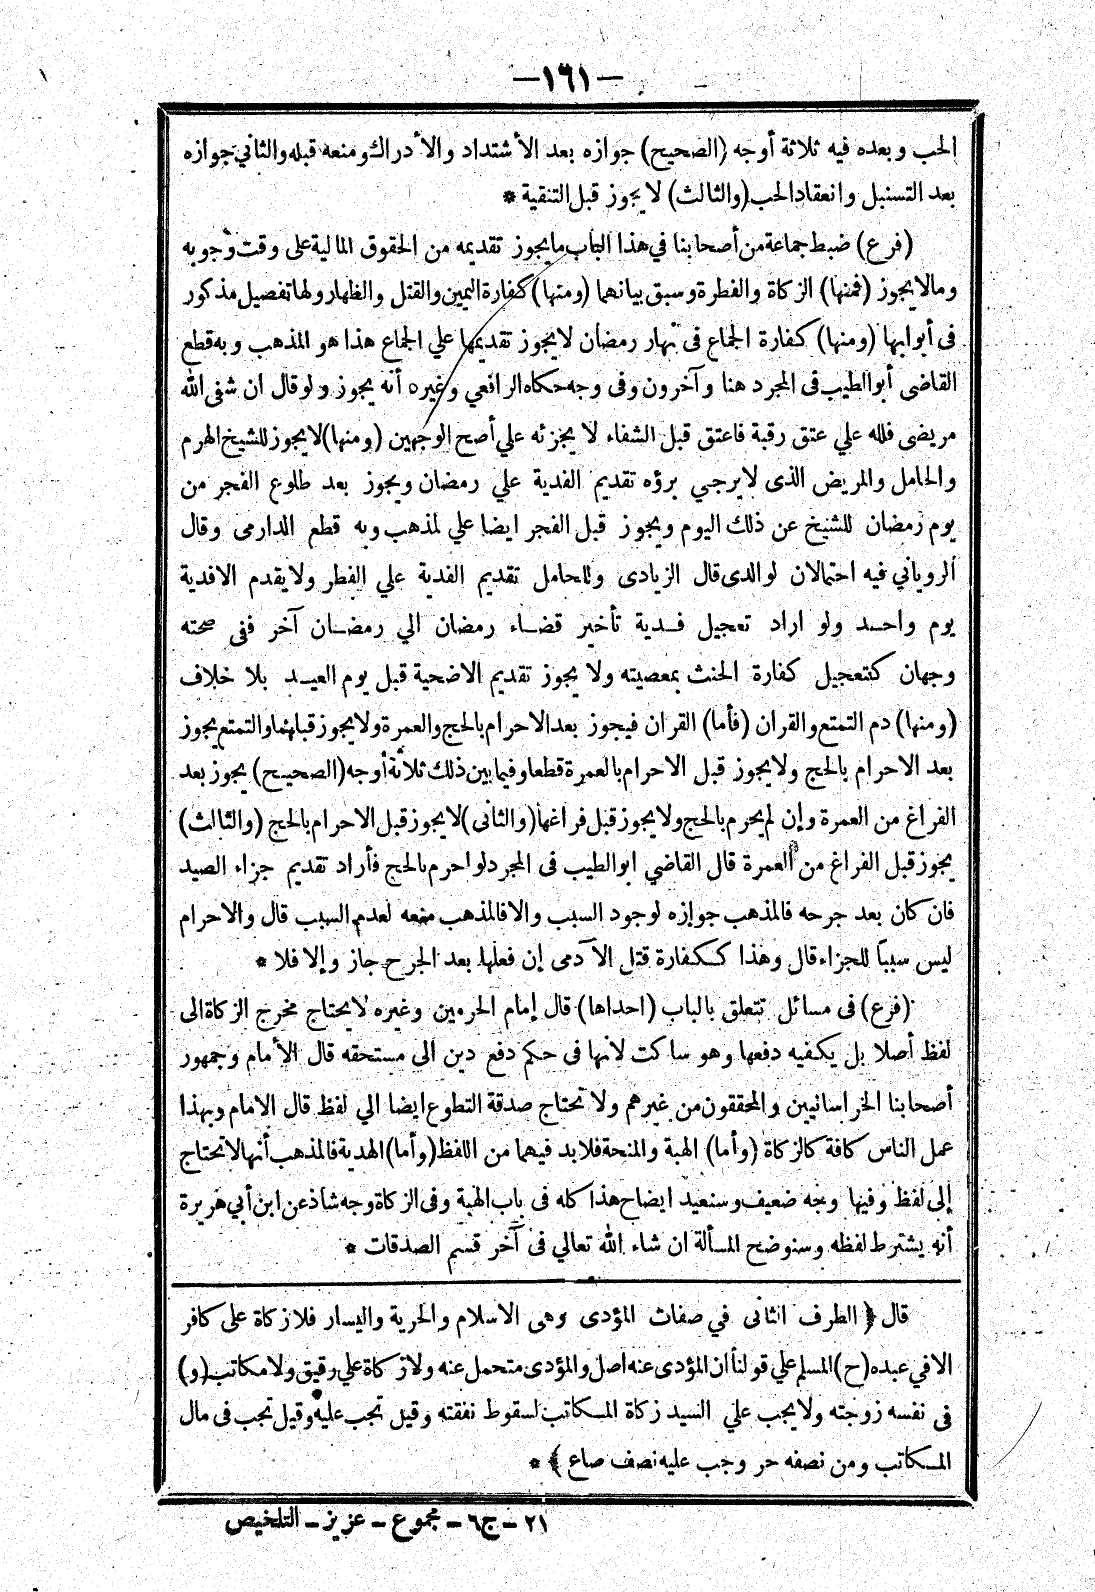 —١٦١—
الحب وبعده فيه ثلاثة أوجه (الصحيح) جوازه بعد الأشتداد والأدراك ومنعه قبله والثاني جوازه
بعد التسنبل وانعقاد الحب (والثالث) لا يجوز قبل التنقية *
(فرع) ضبط جماعة من أصحابنا في هذا الباب ما يجوز تقديمه من الحقوق المالية على وقت وجوبه
وما لا يجوز (فمنها) الزكاة والفطرة وسبق بيانهما (ومنها) كفارة اليمين والقتل والظهار ولها تفصيل مذكور
فى أبوابها (ومنها) كفارة الجماع فى نهار رمضان لا يجوز تقديمها علي الجماع هذا هو المذهب وبه قطع
القاضى أبو الطيب فى المجرد هنا وآخرون وفى وجه حكاه الرافعي وغيره أنه يجوز ولو قال ان شفى الله
مريضى فلله علي عتق رقبة فاعتق قبل الشفاء لا يجزئه علي أصح الوجهين (ومنها) لا يجوز للشيخ الهرم
والحامل والمريض الذى لا يرجي برؤه تقديم الفدية علي رمضان ويجوز بعد طلوع الفجر من
يوم رمضان للشيخ عن ذلك اليوم ويجوز قبل الفجر ايضا علي لمذهب وبه قطع الدارمى وقال
الروياني فيه احتمالان لوالدى قال الزيادى وللحامل تقديم الفدية علي الفطر ولا يقدم الا فدية
يوم واحـد ولو اراد تعجيل فـدية تأخير قضـاء رمضان الي رمضـان آخر ففى صحته
وجهان كتعجيل كفارة الحنث بمعصيته ولا يجوز تقديم الاضحية قبل يوم العيـد بلا خلاف
(ومنها) دم التمتع والقران (فأما) القران فيجوز بعد الاحرام بالحج والعمرة ولا يجوز قبلهما والتمتع يجوز
بعد الاحرام بالحج ولا يجوز قبل الاحرام بالعمرة قطعا وفيما بين ذلك ثلاثة أوجه (الصحيح) يجوز بعد
الفراغ من العمرة وإن لم يحرم بالحج ولا يجوز قبل فراغها (والثانى) لا يجوز قبل الاحرام بالحج (والثالث)
يجوز قبل الفراغ من العمرة قال القاضي ابو الطيب فى المجرد لو احرم بالحج فأراد تقديم جزاء الصيد
فان كان بعد جرحه فالمذهب جوازه لوجود السبب والا فالمذهب منعه لعدم السبب قال والاحرام
ليس سببا للجزاء قال وهذا كـكفارة قتل الآدمى إن فعلها بعد الجرح جاز وإلا فلا *
(فرع) فى مسائل تتعلق بالباب (احداها) قال إمام الحرمين وغيره لا يحتاج مخرج الزكاة الى
لفظ أصلا بل يكفيه دفعها وهو ساكت لانها فى حكم دفع دين الى مستحقه قال الأمام وجمهور
أصحابنا الخراسانيين والمحققون من غيرهم ولا تحتاج صدقة التطوع ايضا الي لفظ قال الامام وبهذا
عمل الناس كافة كالزكاة (وأما) الهبة والمنحة فلابد فيهما من اللفظ (وأما) الهدية فالمذهب أنها لا تحتاج
إلى لفظ وفيها وجه ضعيف وسنعيد ايضاح هذا كله فى باب الهبة وفى الزكاة وجه شاذ عن ابن أبي هريرة
أنه يشترط لفظه وسنوضح المسألة ان شاء الله تعالي فى آخر قسم الصدقات *
قال ﴿ الطرف الثانى في صفات المؤدى وهى الاسلام والحرية واليسار فلا زكاة على كافر
الا في عبده (ح) المسلم علي قولنا ان المؤدى عنه اصل والمؤدى متحمل عنه ولا زكاة علي رقيق ولا مكاتب (و)
فى نفسه زوجته ولا يجب علي السيد زكاة المـكاتب لسقوط نفقته وقيل تجب عليه وقيل تجب فى مال
المـكاتب ومن نصفه حر وجب عليه نصف صاع ﴾ *
٢١ – ج٦ – مجموع – عزيز – التلخيص